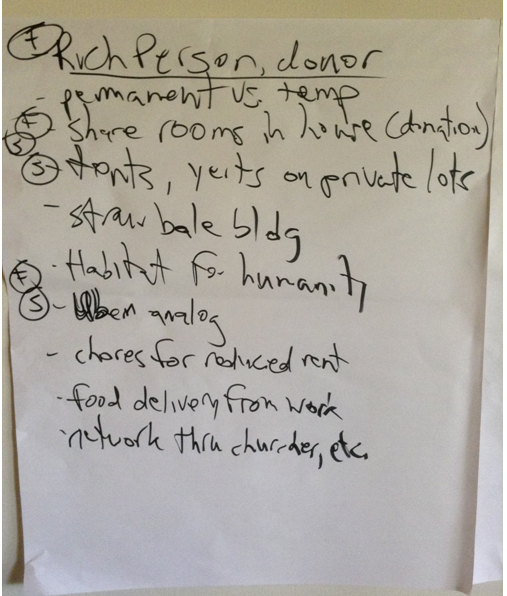 (F) Rich Person, donor
- permanent vs. temp
(F) (S) - share rooms in house (donation)
(S) - tents, yerts on private lots
- straw bale bldg
(F) - Habitat for humanity
(S) - analog
- chores for reduced rent
- food delivery from work
- network thru churches, etc.